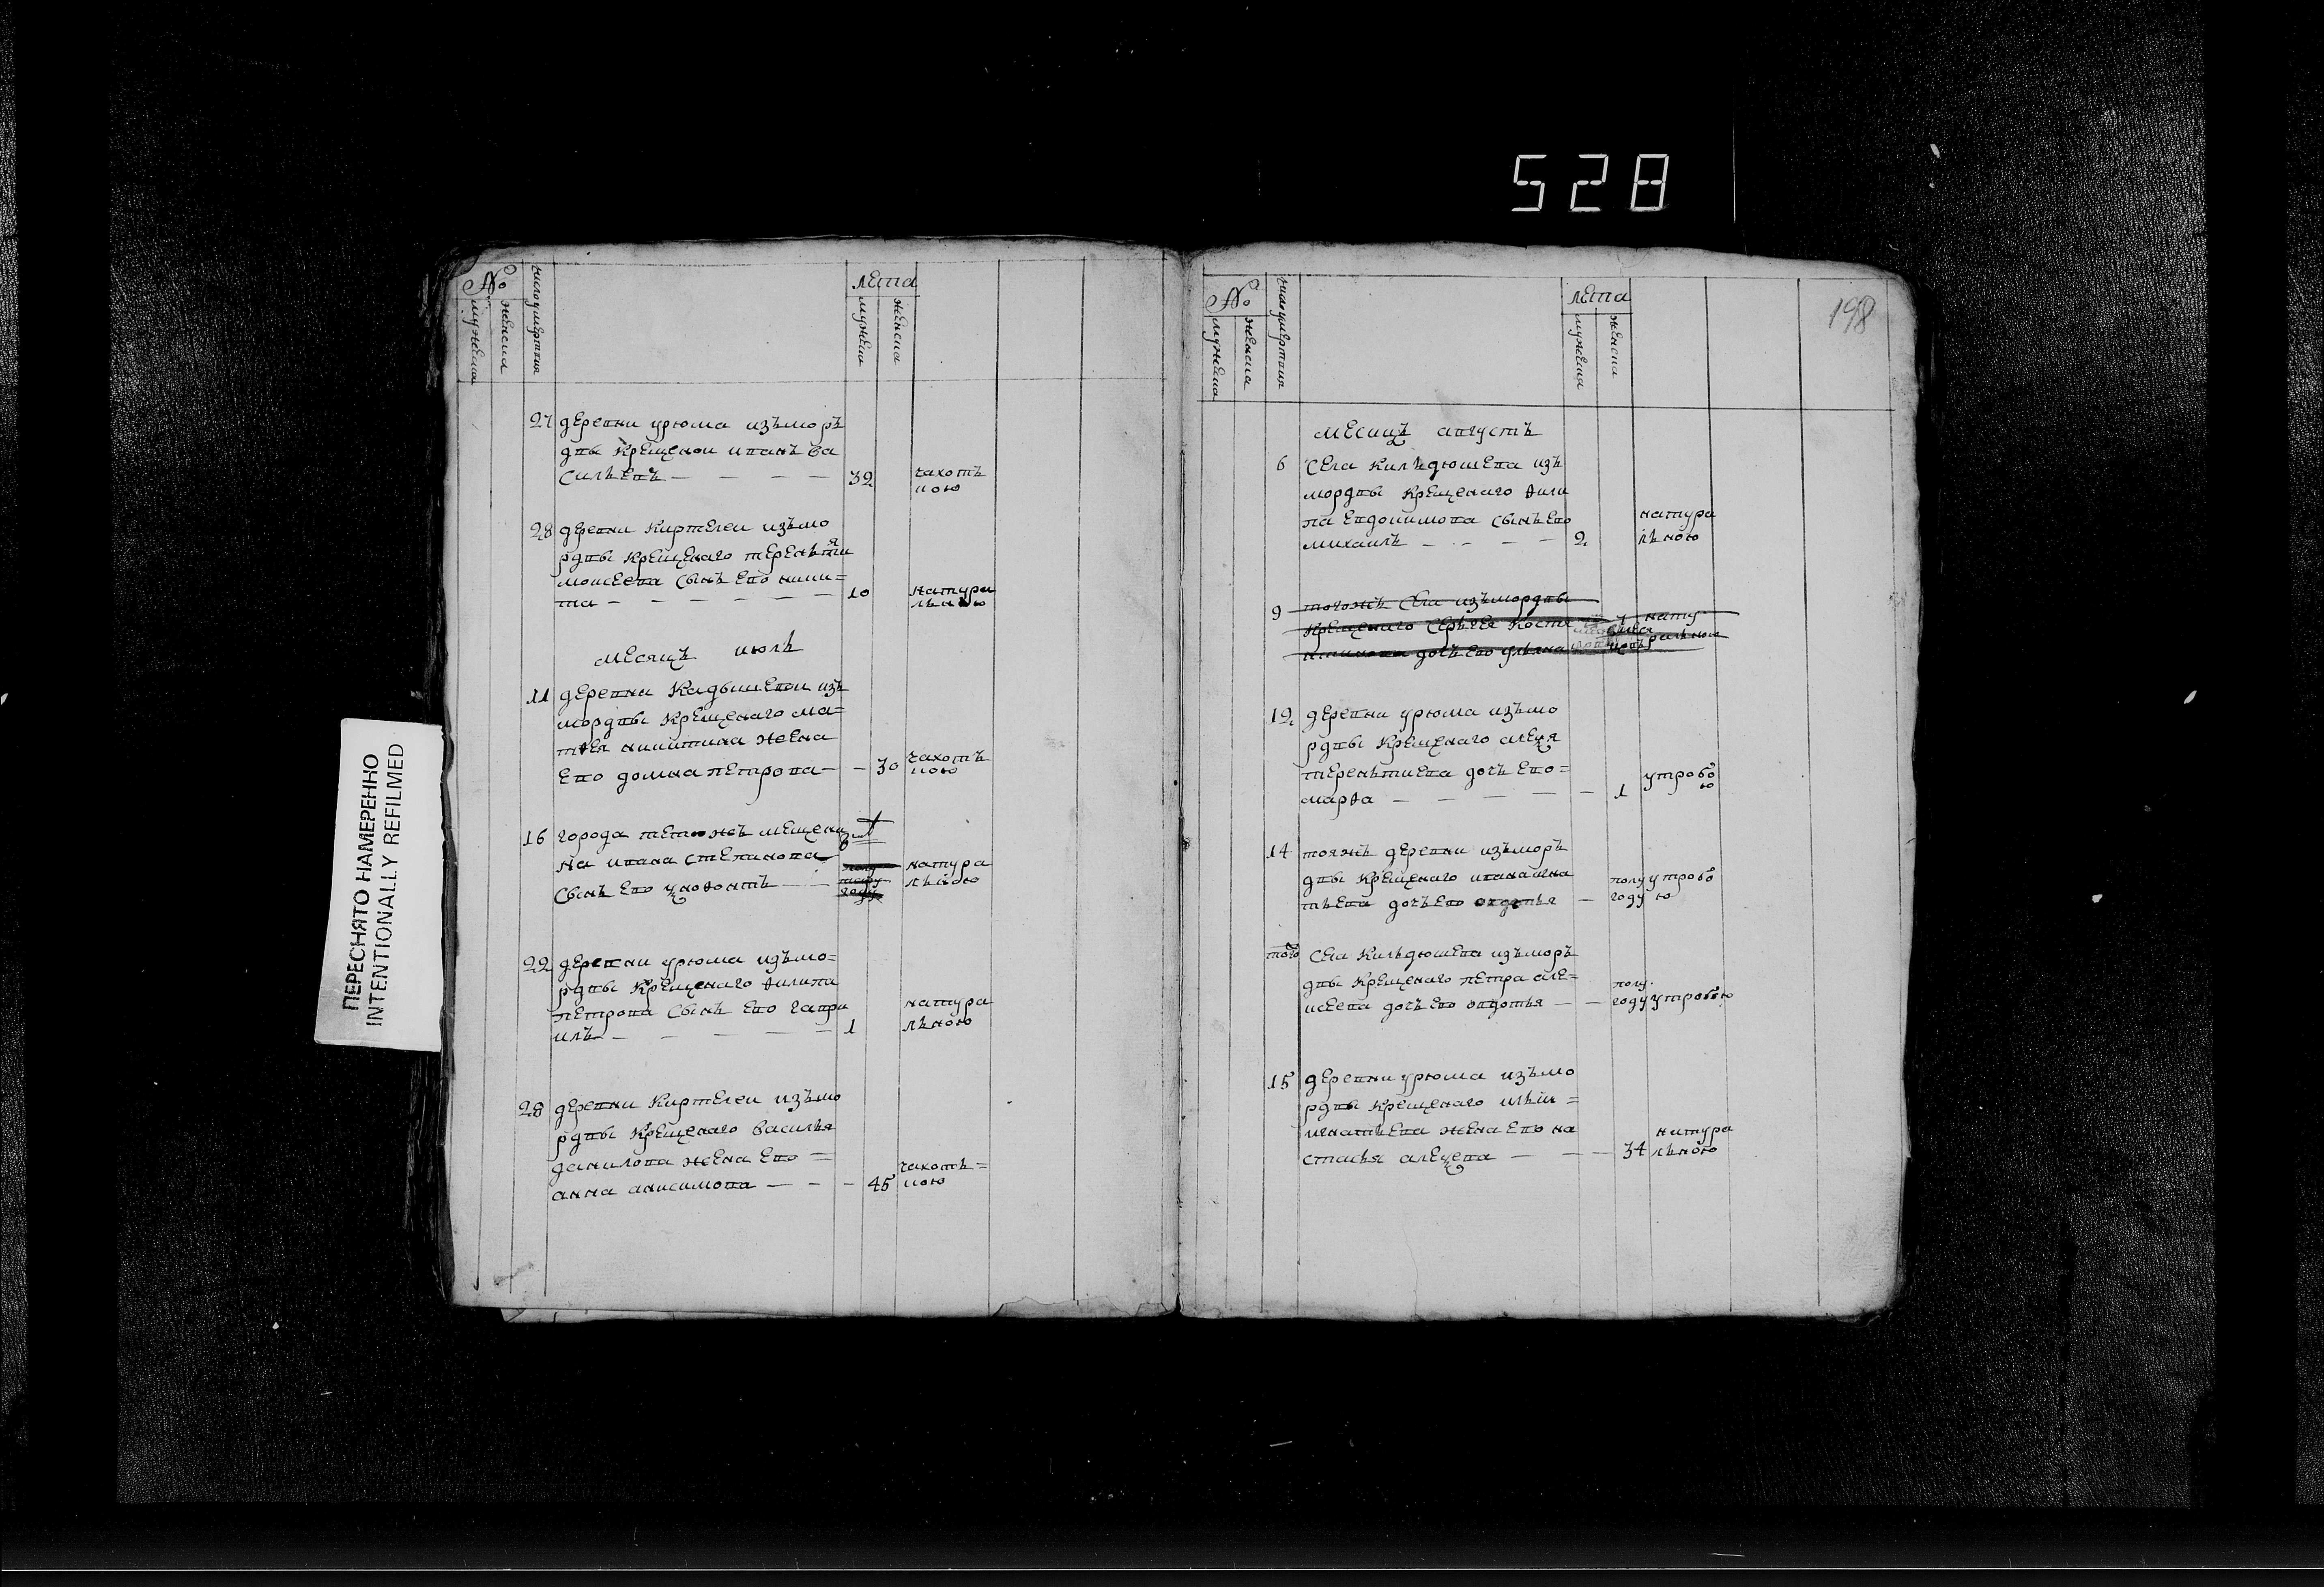 528
ПЕРЕСНЯТО НАМЕРЕННО
INTENTIONALLY REFILMED
№
мужеска
женска
число умертвия
лета
мужеска
женска
27 деревни урюма изъ мор
двы крещеной иванъ ва
сильевъ 32 чахот
ною
28 деревни киртелеи изъ мо
рдвы крещенаго терентия
моисеева сынъ ево ники=
та 10 натура
льною
месяцъ июль
11 деревни кадышевои изъ
мордвы крещенаго ма=
твея никитина жена
ево домна петрова 30 чахот
ною
16 города тетюжъ мещени
на ивана степанова натура
сынъ ево ксенофонтъ льною
22 деревни урюма изъ мо=
рдвы крещенаго филипа
петрова сынъ ево гаври натура
илъ 1 льною
28 деревни киртелеи изъ мо
рдвы крещенаго василья
данилова жена ево = чахот=
анна анисимова 45 ною
198
№
мужеска
женска
число умертвия
лета
мужеска
женска
месяцъ августъ
6 села кильдюшева изъ
мордвы крещенаго фили
па евдокимова сынъ ево натура
михаилъ 2 льною
9 тогожъ села изъ мордвы
крещенаго сергея коста нату
дочь ево ульяна ральною
12 деревни урюма изъ мо
рдвы крещенаго алексея
терентиева дочь ево= утробо
марфа 1 ю
14 тояжъ деревни изъ мор
двы крещенаго ивана игна полу утробо
тьева дочь ево авдотья году ю
того села кильдюшева изъ мор
двы крещенаго петра але= полу
исеева дочь ево авдотья году утробою
15 деревни урюма изъ мо
рдвы крещенаго ильи =
игнатьева жена ево на натура
стасья алексеева 34 льною